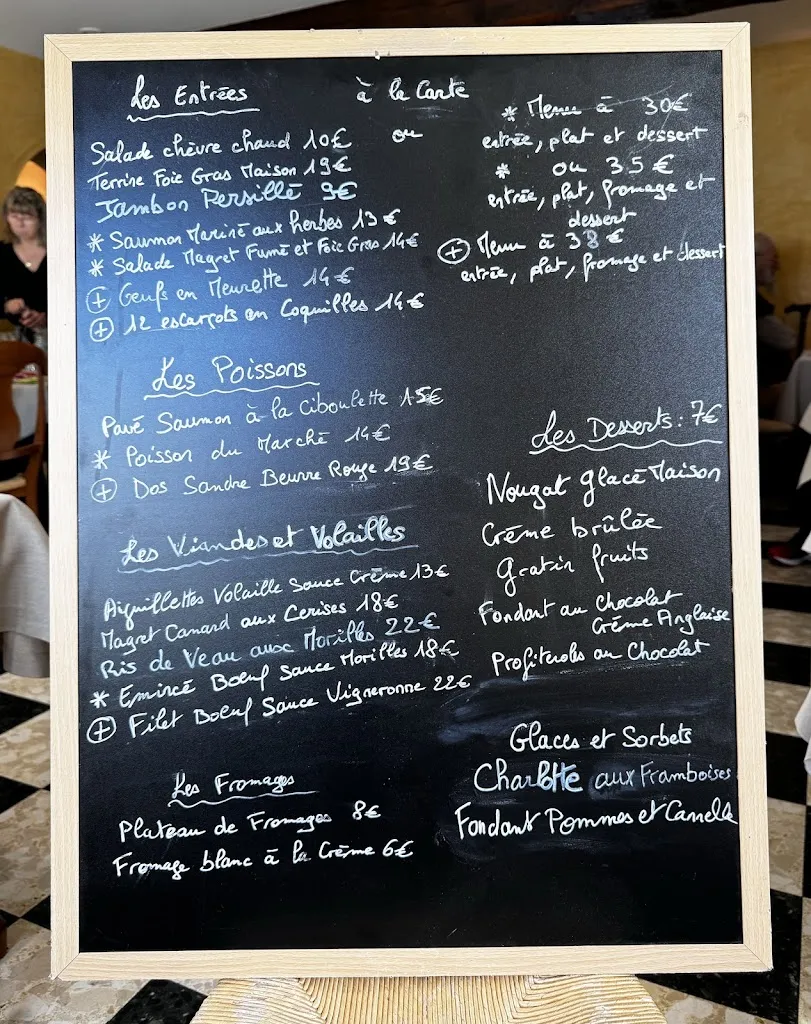 Les Entrées
à la Carte
ou
Salade chèvre chaud 10€
Terrine Foie Gras Maison 19€
Jambon Persillé 9€
* Saumon Mariné aux herbes 13€
* Salade Magret Fumé et Foie Gras 14€
⊕ Oeufs en Meurette 14€
⊕ 12 escargots en Coquilles 14€
* Menu à 30€
entrée, plat et dessert
* ou 35€
entrée, plat, fromage et
dessert
⊕ Menu à 38€
entrée, plat, fromage et dessert
Les Poissons
Pavé Saumon à la Ciboulette 15€
* Poisson du Marché 14€
⊕ Dos Sandre Beurre Rouge 19€
Les Viandes et Volailles
Aiguillettes Volaille Sauce Crème 13€
Magret Canard aux Cerises 18€
Ris de Veau aux Morilles 22€
* Emincé Boeuf Sauce Morilles 18€
⊕ Filet Boeuf Sauce Vigneronne 22€
Les Fromages
Plateau de Fromages 8€
Fromage blanc à la Crème 6€
Les Desserts : 7€
Nougat glacé Maison
Crème brûlée
Gratin fruits
Fondant au Chocolat
Crème Anglaise
Profiteroles au Chocolat
Glaces et Sorbets
Charlotte aux Framboises
Fondant Pommes et Cannelle